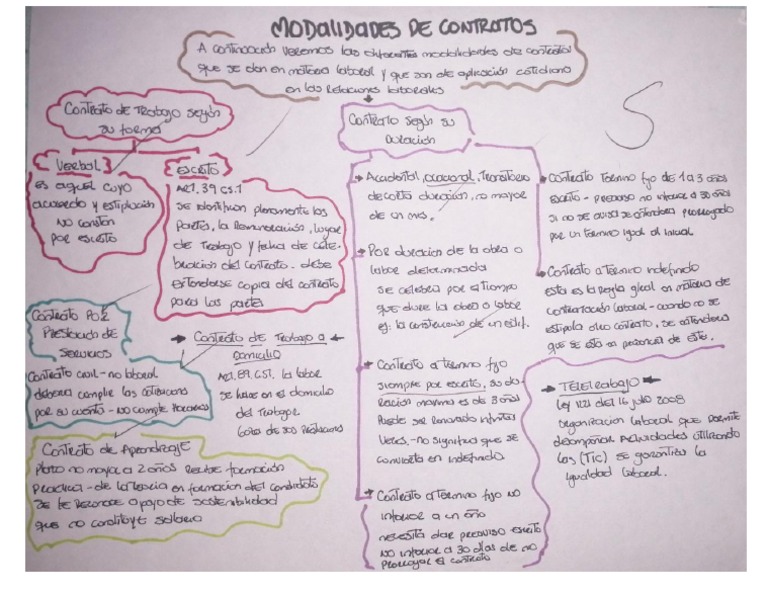 MODALIDADES DE CONTRATOS
A continuación veremos las diferentes modalidades de contratos
que se dan en materia laboral y que son de aplicación cotidiana
en las relaciones laborales
5
Contrato de Trabajo según
su forma
Verbal
es aquel cuyo
acuerdo y estipulación
no constan
por escrito
Escrito
Art. 39 CST
se identifican plenamente las
Partes, la Remuneración, lugar
de Trabajo y fecha de cele-
bración del contrato. debe
extenderse copia del contrato
para las partes
Contrato Por
Prestación de
Servicios
Contrato civil - no laboral
deberá cumplir las cotizaciones
por su cuenta - no cumple Horarios
Contrato de Trabajo a
Domicilio
Art. 89, CST. la labor
se hace en el domicilio
del Trabajor
Contrato de Aprendizaje
Plazo no mayor a 2 años Recibe formación
practica - de la teoría en formación del contratado
se le reconoce apoyo de sostenibilidad
que no constituye salario
Contrato según su
Duración
Accidental, ocasional, Transitorio
de corta duración, no mayor
de un mes.
Por duración de la obra o
labor determinada
se celebra por el Tiempo
que dure la obra o labor
ej: la construcción de un edif.
Contrato a término fijo
siempre por escrito, su du-
ración maxima es de 3 años
Puede ser renovado
Veces, - no significa que se
convierta en indefinido
Contrato a término fijo no
inferior a un año
necesita dar preaviso escrito
no inferior a 30 días de no
Prorrogar el contrato
Contrato Término fijo de 1 a 3 años
Escrito - preaviso no inferior a 30 días
si no se avisa se entendera prorrogado
por un término igual al inicial.
Contrato a Término indefinido
esta es la regla gral en materia de
contratación laboral - cuando no se
estipula otro contrato, se entendera
que se está en presencia de este.
Teletrabajo
Ley 1221 del 16 julio 2008
organizacion laboral que permite
desempeñar Actividades utilizando
las (Tic) se garantiza la
igualdad laboral.